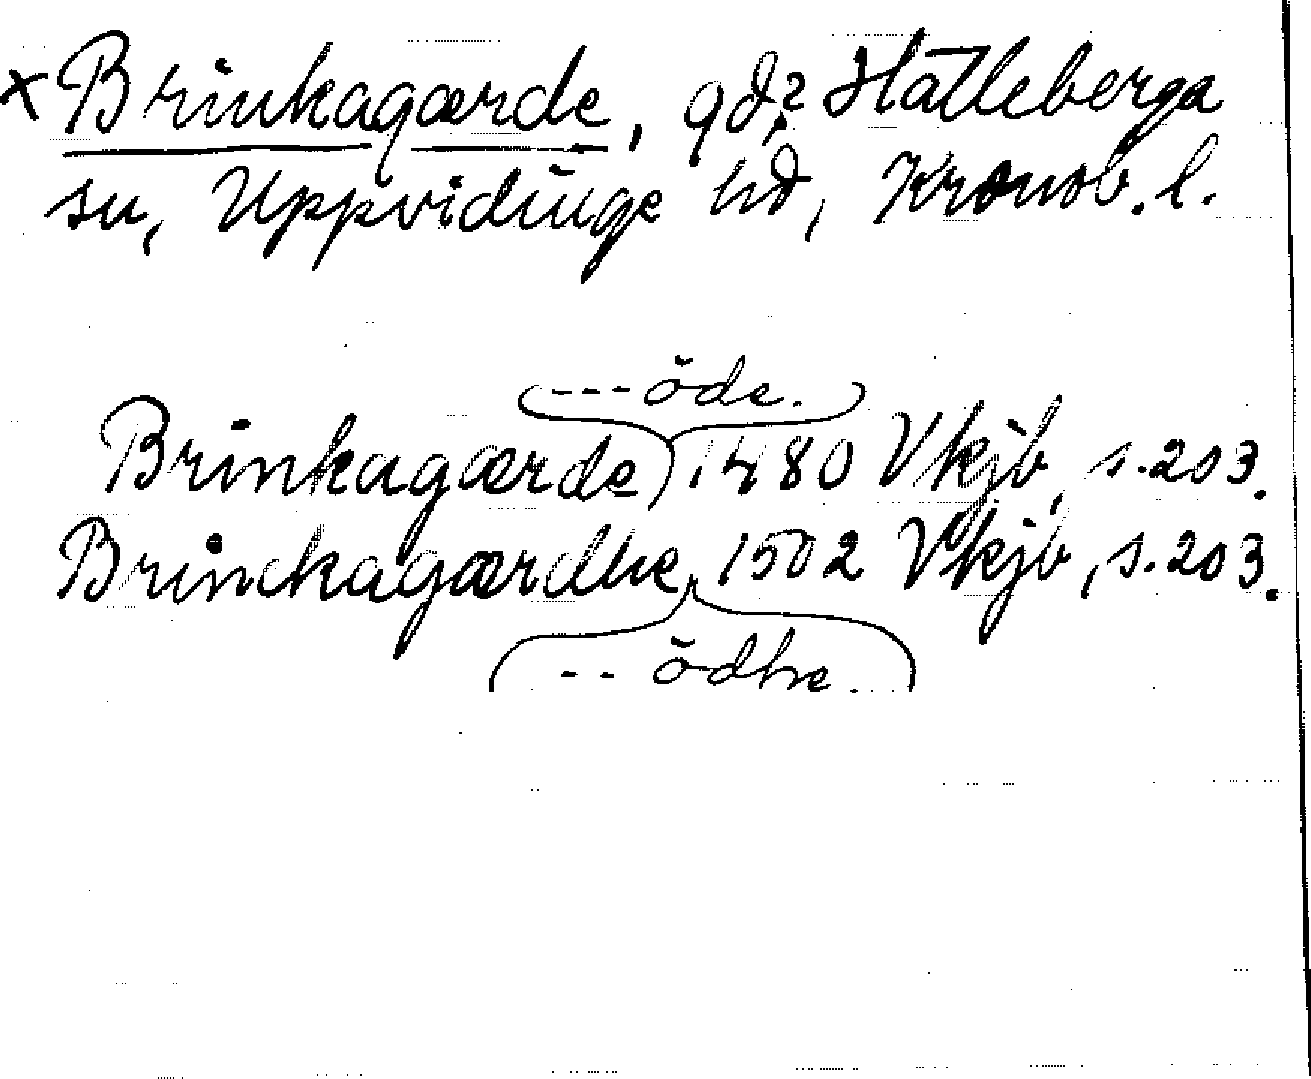 ×Brinkagærde, gd? Hälleberga
sn, Uppvidinge hd, Kronob. l.
--- öde.
Brinkagærde 1480 Vkjb, s. 203.
Brinckagærdhe, 1502 Vkjb, s. 203.
-- ödhe.